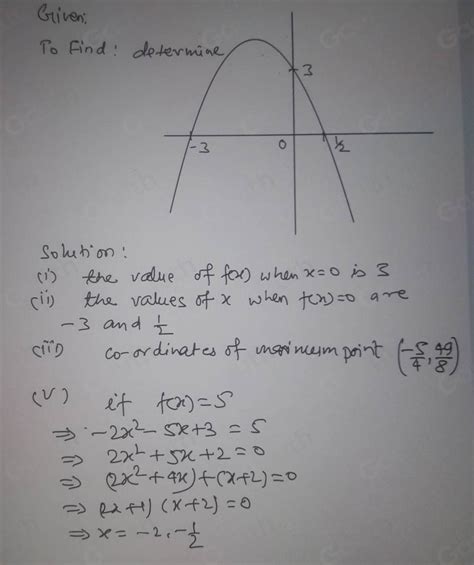 Given:
To Find: determine
3
-3
0
1/2
Solution:
(i) the value of f(x) when x=0 is 3
(ii) the values of x when f(x)=0 are
-3 and 1/2
(iii) co-ordinates of maximum point (-5/4, 49/8)
(V) if f(x)=5
⇒ -2x²-5x+3 = 5
⇒ 2x²+5x+2=0
⇒ (2x²+4x)+(x+2)=0
⇒ (2x+1) (x+2)=0
⇒ x= -2, -1/2